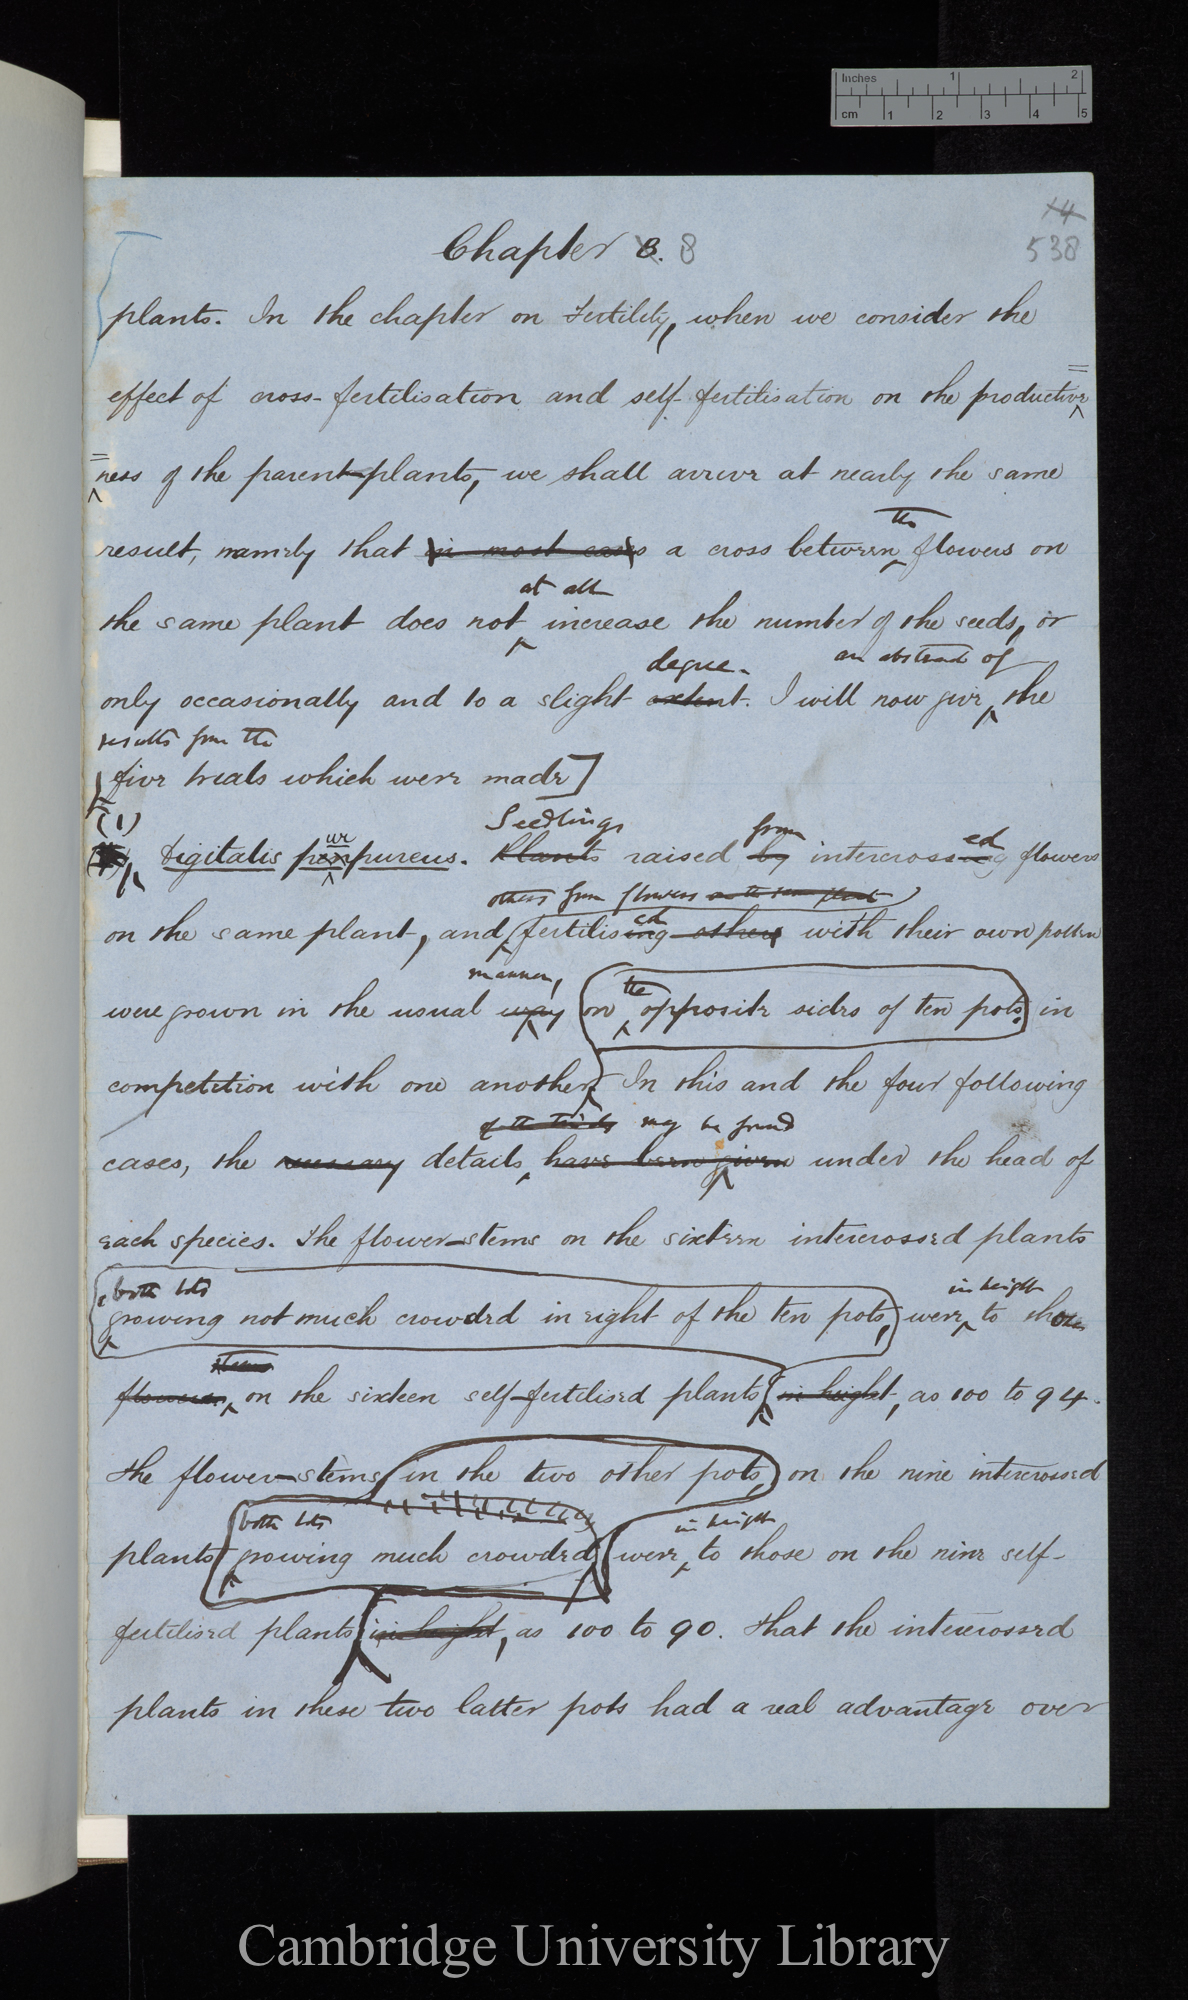 Inches 1 2
cm 1 2 3 4 5
14
Chapter 8. 8 538
plants. In the chapter on Fertility, when we consider the
effect of cross-fertilisation and self-fertilisation on the productive=
=ness of the parent-plants, we shall arrive at nearly the same
the
result, namely that in most cases a cross between flowers on
at all
the same plant does not increase the number of the seeds, or
degree. an abstract of
only occasionally and to a slight extent. I will now give the
results from the
five trials which were made]
(1) Seedlings from ed
ur
Digitalis penpureus. Plants raised by intercrossing flowers
others from flowers on the same plant
ed
on the same plant, and fertilising others with their own pollen
manner, the
were grown in the usual way on opposite sides of ten pots. in
competition with one another. In this and the four following
of the trials may be found
cases, the necessary details, have been given under the head of
each species. The flower-stems on the sixteen intercrossed plants
both lots in height
growing not much crowded in eight of the ten pots, were to those
stems
flowers, on the sixteen self-fertilised plants in height, as 100 to 94.
The flower-stems in the two other pots, on the nine intercrossed
both lots in height
plants growing much crowded were to those on the nine self-
fertilised plants in height, as 100 to 90. That the intercrossed
plants in these two latter pots had a real advantage over
Cambridge University Library